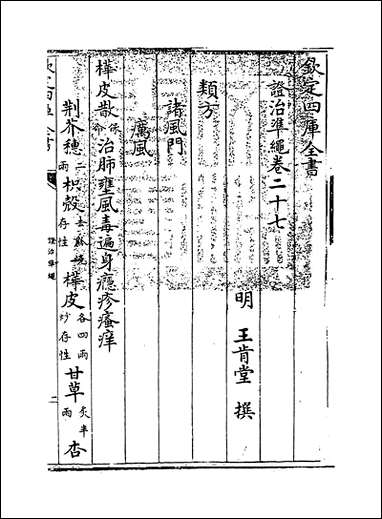 欽定四庫全書
證治準繩卷二十七
明 王肯堂 撰
類方
諸風門
癘風
樺皮散保命治肺壅風毒遍身癮疹瘙痒
荆芥穗二兩枳殻去穰燒存性樺皮各四兩炒存性甘草炙半兩杏
欽定四庫全書
證治準繩
二